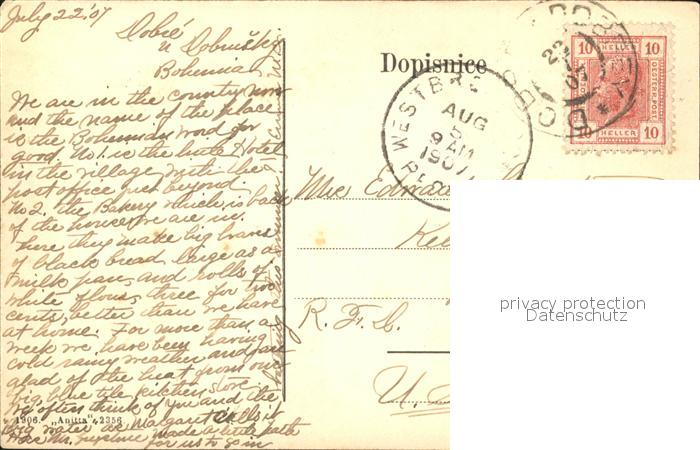 July 22 '07
Dobré
u Dobrušky
Bohemia
We are in the country now
and the name of the place
is the Bohemian word for
good. No. 1. is the little Hotel
in the village with the
post office just beyond.
No 2. the Bakery which is back
of the house we are in.
Here they make big loaves
of black bread large as a
milk pan, and rolls of
white flour, three for two
cents, better than we have
at home. For more than a
week we have been having
cold rainy weather and are
glad of the heat from our
big blue tile kitchen stove.
We often think of you and the
big water as Margaret calls it
made a little path
for us to go in
1906. "Anitta" 2356
Dopisnice
10 10
HELLER
OESTERR. POST
10 HELLER 10
DOBRÉ
22
07
WESTBR
AUG
5
9 AM
1907
Mrs Edward
R. F. D.
U. S.
privacy protection
Datenschutz